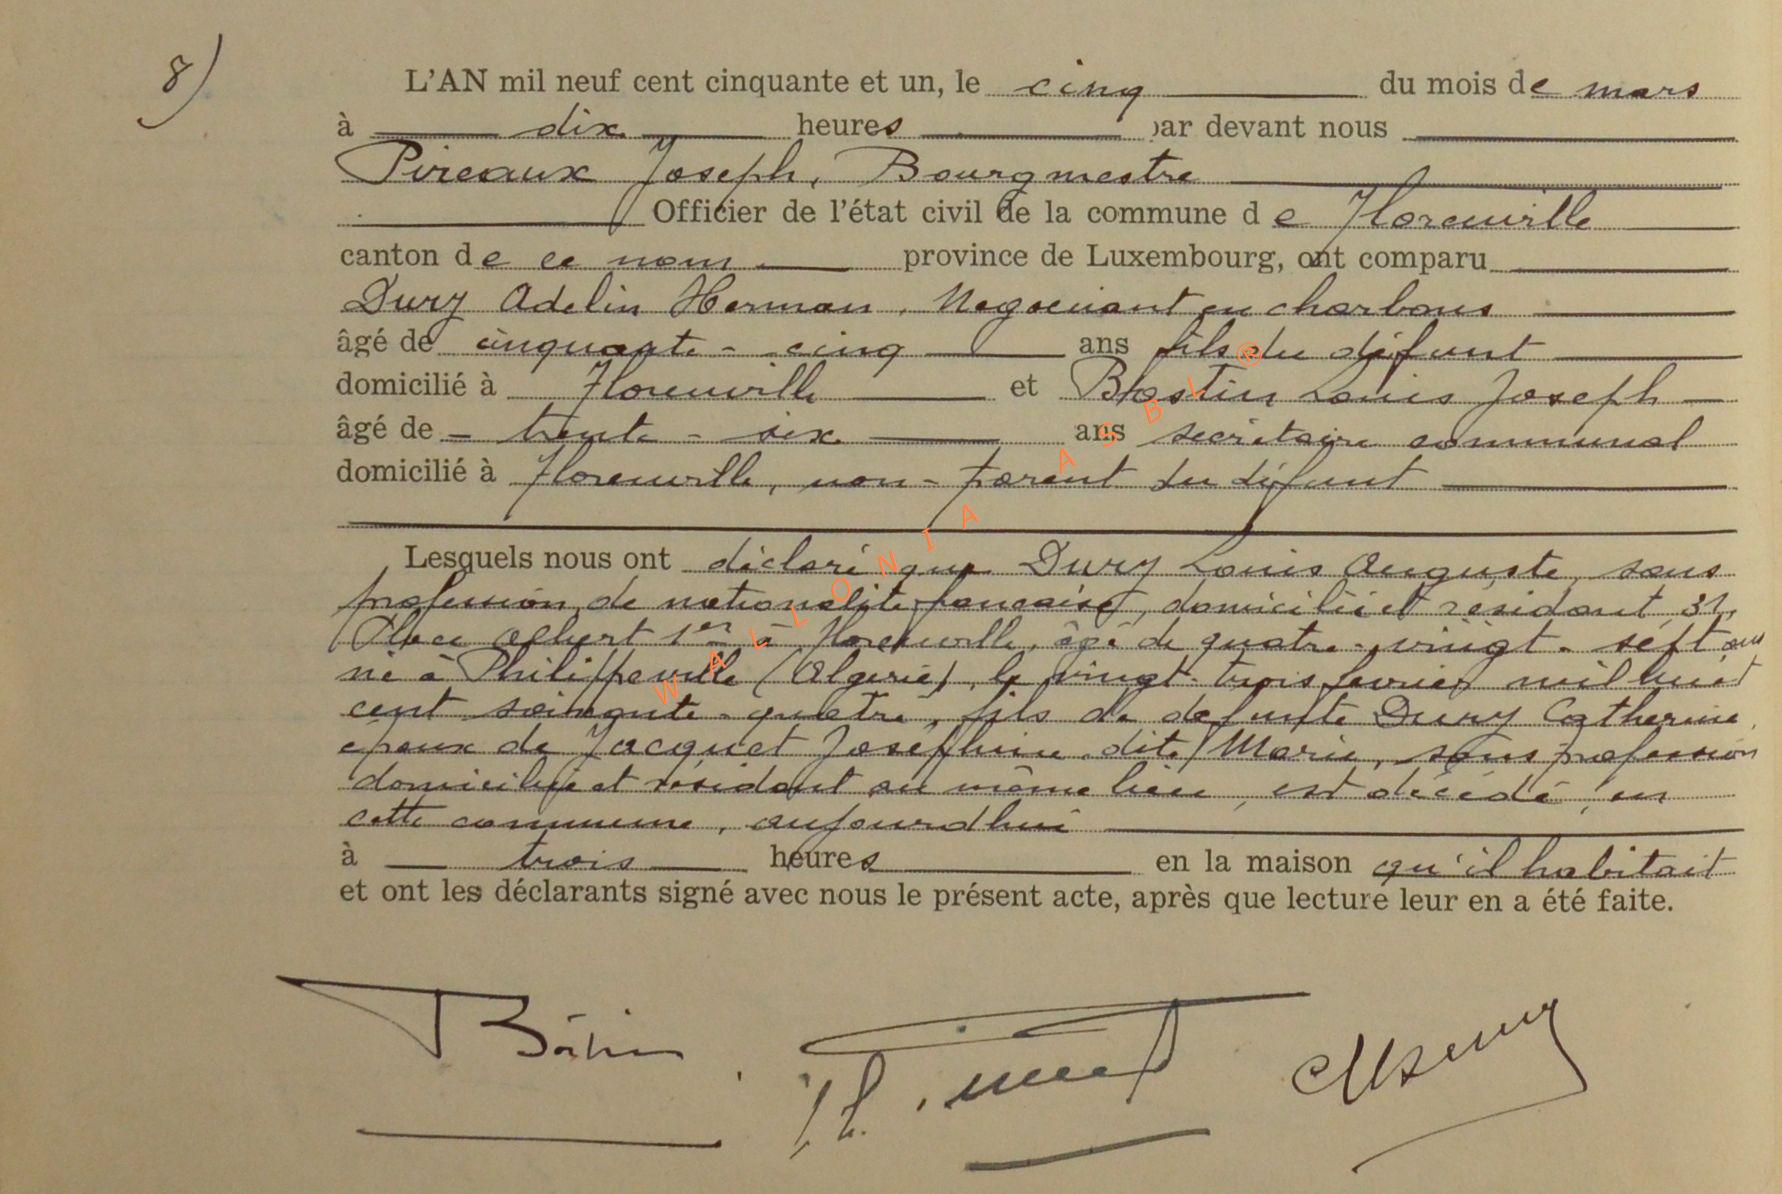 8)
L'AN mil neuf cent cinquante et un, le cinq du mois de mars
à dix heures par devant nous
Pireaux Joseph, Bourgmestre
Officier de l'état civil de la commune de Florenville
canton de ce nom province de Luxembourg, ont comparu
Dury Adelin Herman, Négociant en charbons
âgé de cinquante-cinq ans fils du défunt
domicilié à Florenville et Louis Joseph
âgé de trente-six ans secrétaire communal
domicilié à Florenville, non-parent du défunt
Lesquels nous ont déclaré que Dury Louis Auguste, sans
profession, de nationalité française, domicilié et résidant 31,
Place Albert 1er à Florenville, âgé de quatre-vingt-sept ans
né à Philippeville (Algérie), le vingt-trois février mil huit
cent soixante-quatre, fils de défunte Dury Catherine,
époux de Jacquet Joséphine dite Marie, sans profession
domiciliée et résidant au même lieu, est décédé, en
cette commune, aujourd'hui
à trois heures en la maison qu'il habitait
et ont les déclarants signé avec nous le présent acte, après que lecture leur en a été faite.
WALLONIA ASBL ®